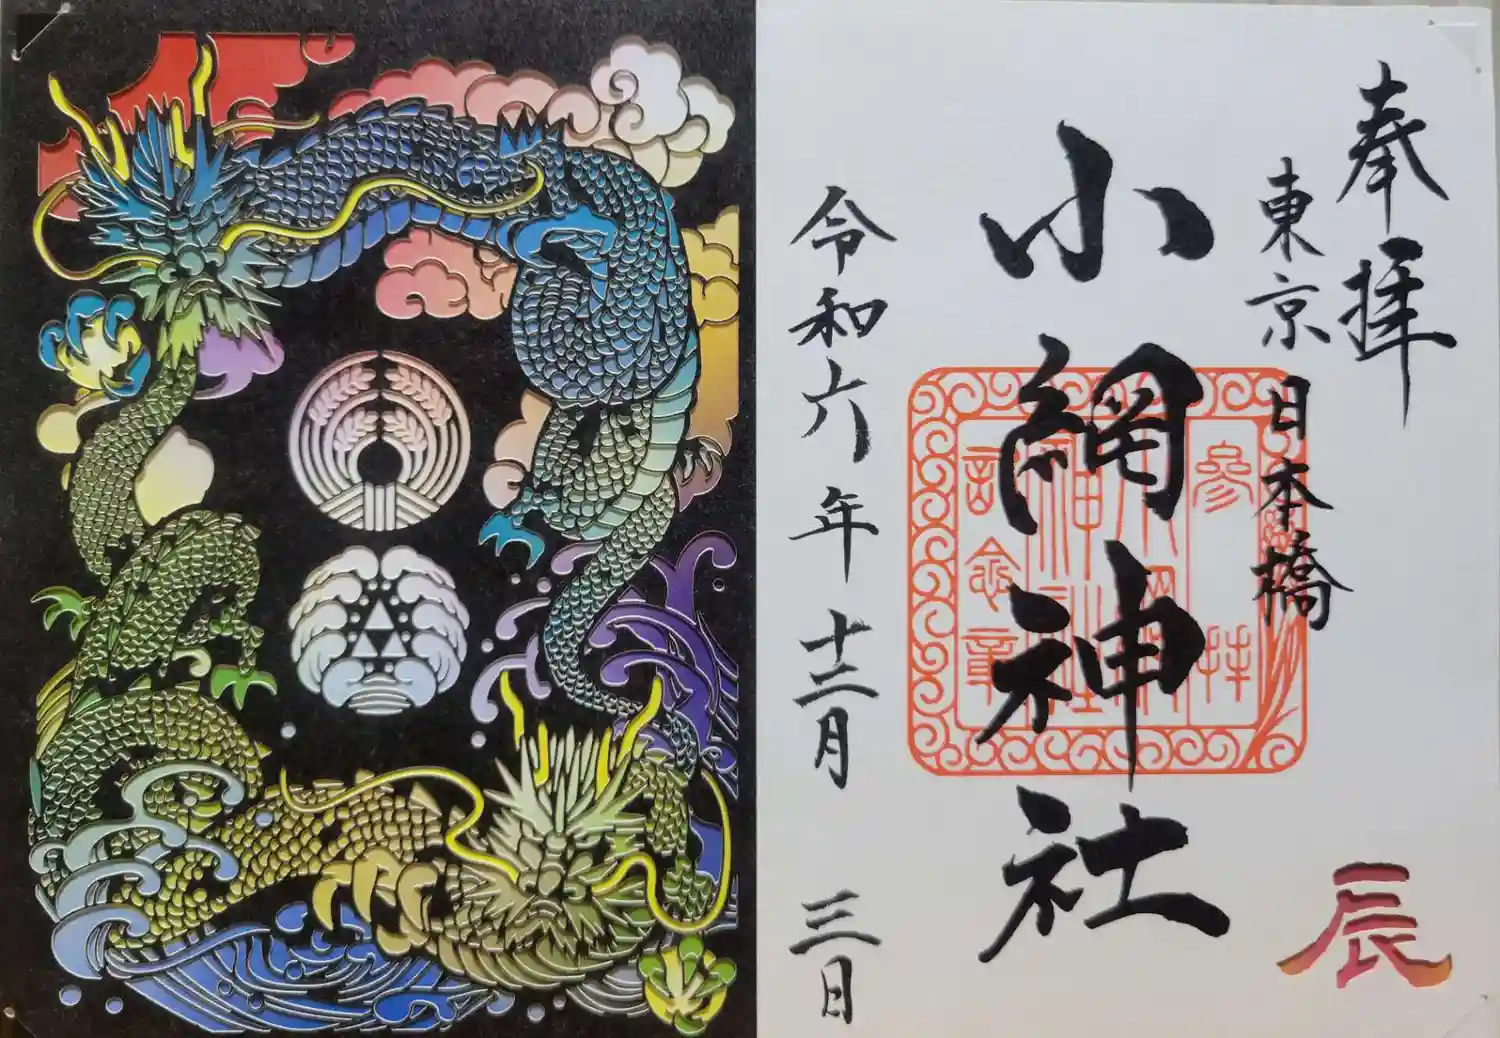 奉拝
東京 日本橋
小網神社
参拝
小網神社
記念章
令和六年十二月三日
辰